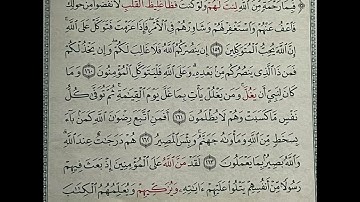 فَبِمَا رَحْمَةٍ مِّنَ اللَّهِ لِنتَ لَهُمْ وَلَوْ كُنتَ فَظًّا غَلِيظَ الْقَلْبِ لَانفَضُّوا مِنْ حَوْلِكَ
فَاعْفُ عَنْهُمْ وَاسْتَغْفِرْ لَهُمْ وَشَاوِرْهُمْ فِي الْأَمْرِ فَإِذَا عَزَمْتَ فَتَوَكَّلْ عَلَى اللَّهِ
إِنَّ اللَّهَ يُحِبُّ الْمُتَوَكِّلِينَ ١٥٩ إِن يَنصُرْكُمُ اللَّهُ فَلَا غَالِبَ لَكُمْ وَإِن يَخْذُلْكُمْ
فَمَن ذَا الَّذِي يَنصُرُكُم مِّن بَعْدِهِ وَعَلَى اللَّهِ فَلْيَتَوَكَّلِ الْمُؤْمِنُونَ ١٦٠ وَمَا
كَانَ لِنَبِيٍّ أَن يَغُلَّ وَمَن يَغْلُلْ يَأْتِ بِمَا غَلَّ يَوْمَ الْقِيَامَةِ ثُمَّ تُوَفَّى كُلُّ
نَفْسٍ مَّا كَسَبَتْ وَهُمْ لَا يُظْلَمُونَ ١٦١ أَفَمَنِ اتَّبَعَ رِضْوَانَ اللَّهِ كَمَن بَاءَ
بِسَخَطٍ مِّنَ اللَّهِ وَمَأْوَاهُ جَهَنَّمُ وَبِئْسَ الْمَصِيرُ ١٦٢ هُمْ دَرَجَاتٌ عِندَ اللَّهِ
وَاللَّهُ بَصِيرٌ بِمَا يَعْمَلُونَ ١٦٣ لَقَدْ مَنَّ اللَّهُ عَلَى الْمُؤْمِنِينَ إِذْ بَعَثَ فِيهِمْ
رَسُولًا مِّنْ أَنفُسِهِمْ يَتْلُوا عَلَيْهِمْ آيَاتِهِ وَيُزَكِّيهِمْ وَيُعَلِّمُهُمُ الْكِتَابَ